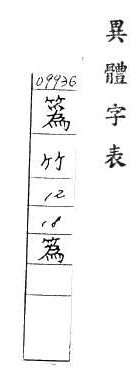 異體字表
09936
竹
12
18